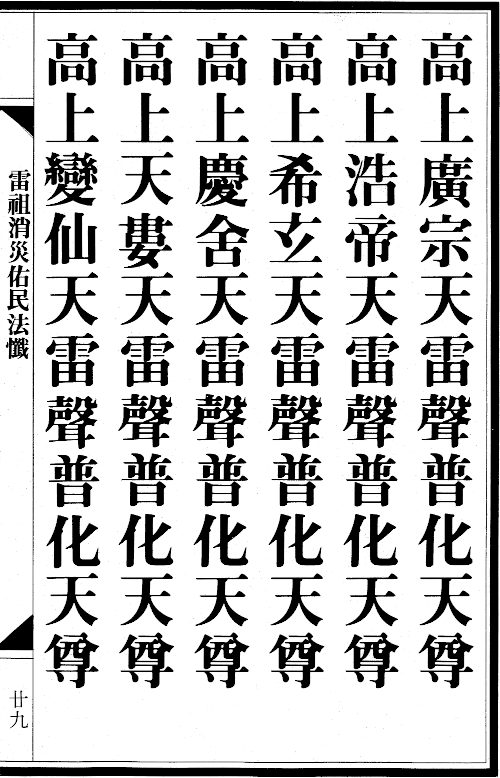 高上廣宗天雷聲普化天尊
高上浩帝天雷聲普化天尊
高上希玄天雷聲普化天尊
高上慶舍天雷聲普化天尊
高上天婁天雷聲普化天尊
高上變仙天雷聲普化天尊
雷祖消災佑民法懺
廿九